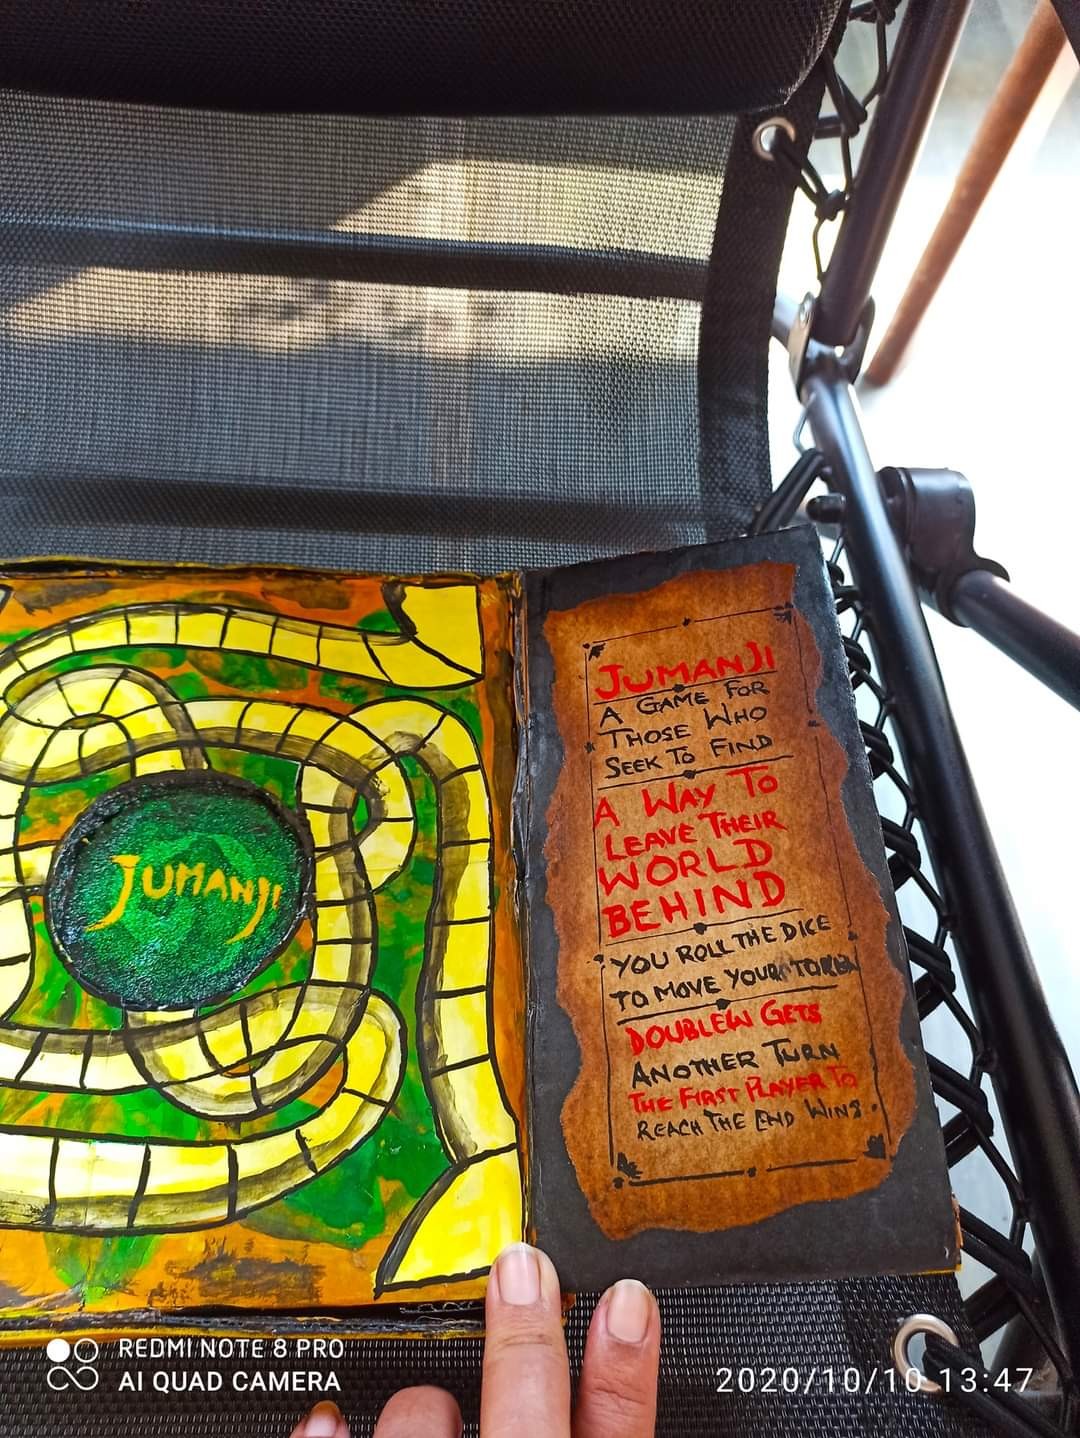 JUMANJI
JUMANJI
A GAME FOR
THOSE WHO
SEEK TO FIND
A WAY TO
LEAVE THEIR
WORLD
BEHIND
YOU ROLL THE DICE
TO MOVE YOUR TOKEN
DOUBLEW GETS
ANOTHER TURN
THE FIRST PLAYER TO
REACH THE END WINS.
REDMI NOTE 8 PRO
AI QUAD CAMERA
2020/10/10 13:47